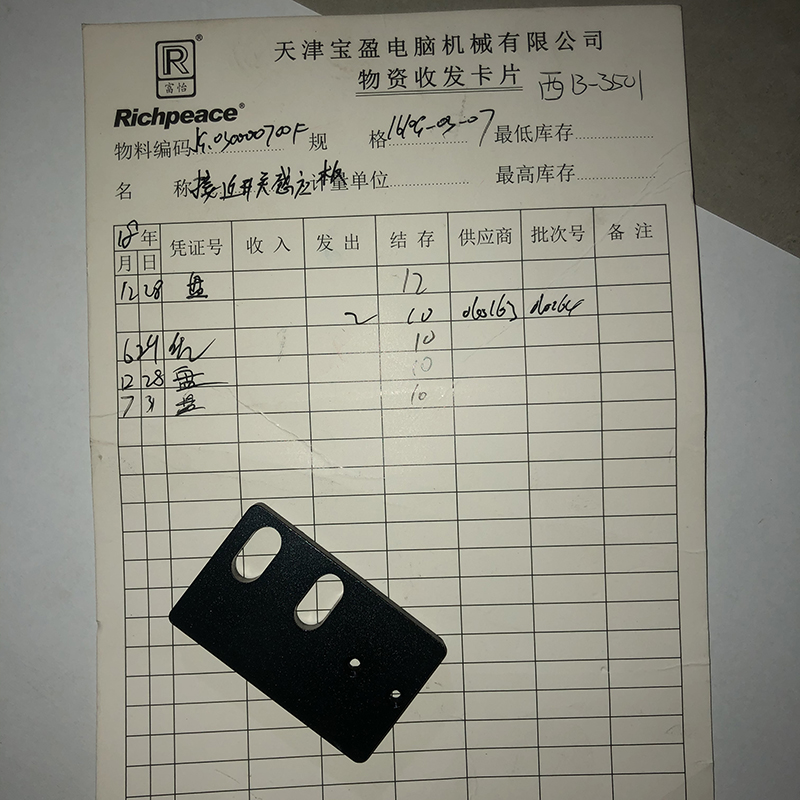 R®
富怡
Richpeace®
天津宝盈电脑机械有限公司
物资收发卡片 西B-3501
物料编码 规格 最低库存
名称接近开关感应板 计量单位 最高库存
18年 凭证号 收入 发出 结存 供应商 批次号 备注
月 日
12 28 盘 12
2 10
6 29 10
12 28 盘 10
7 31 盘 10